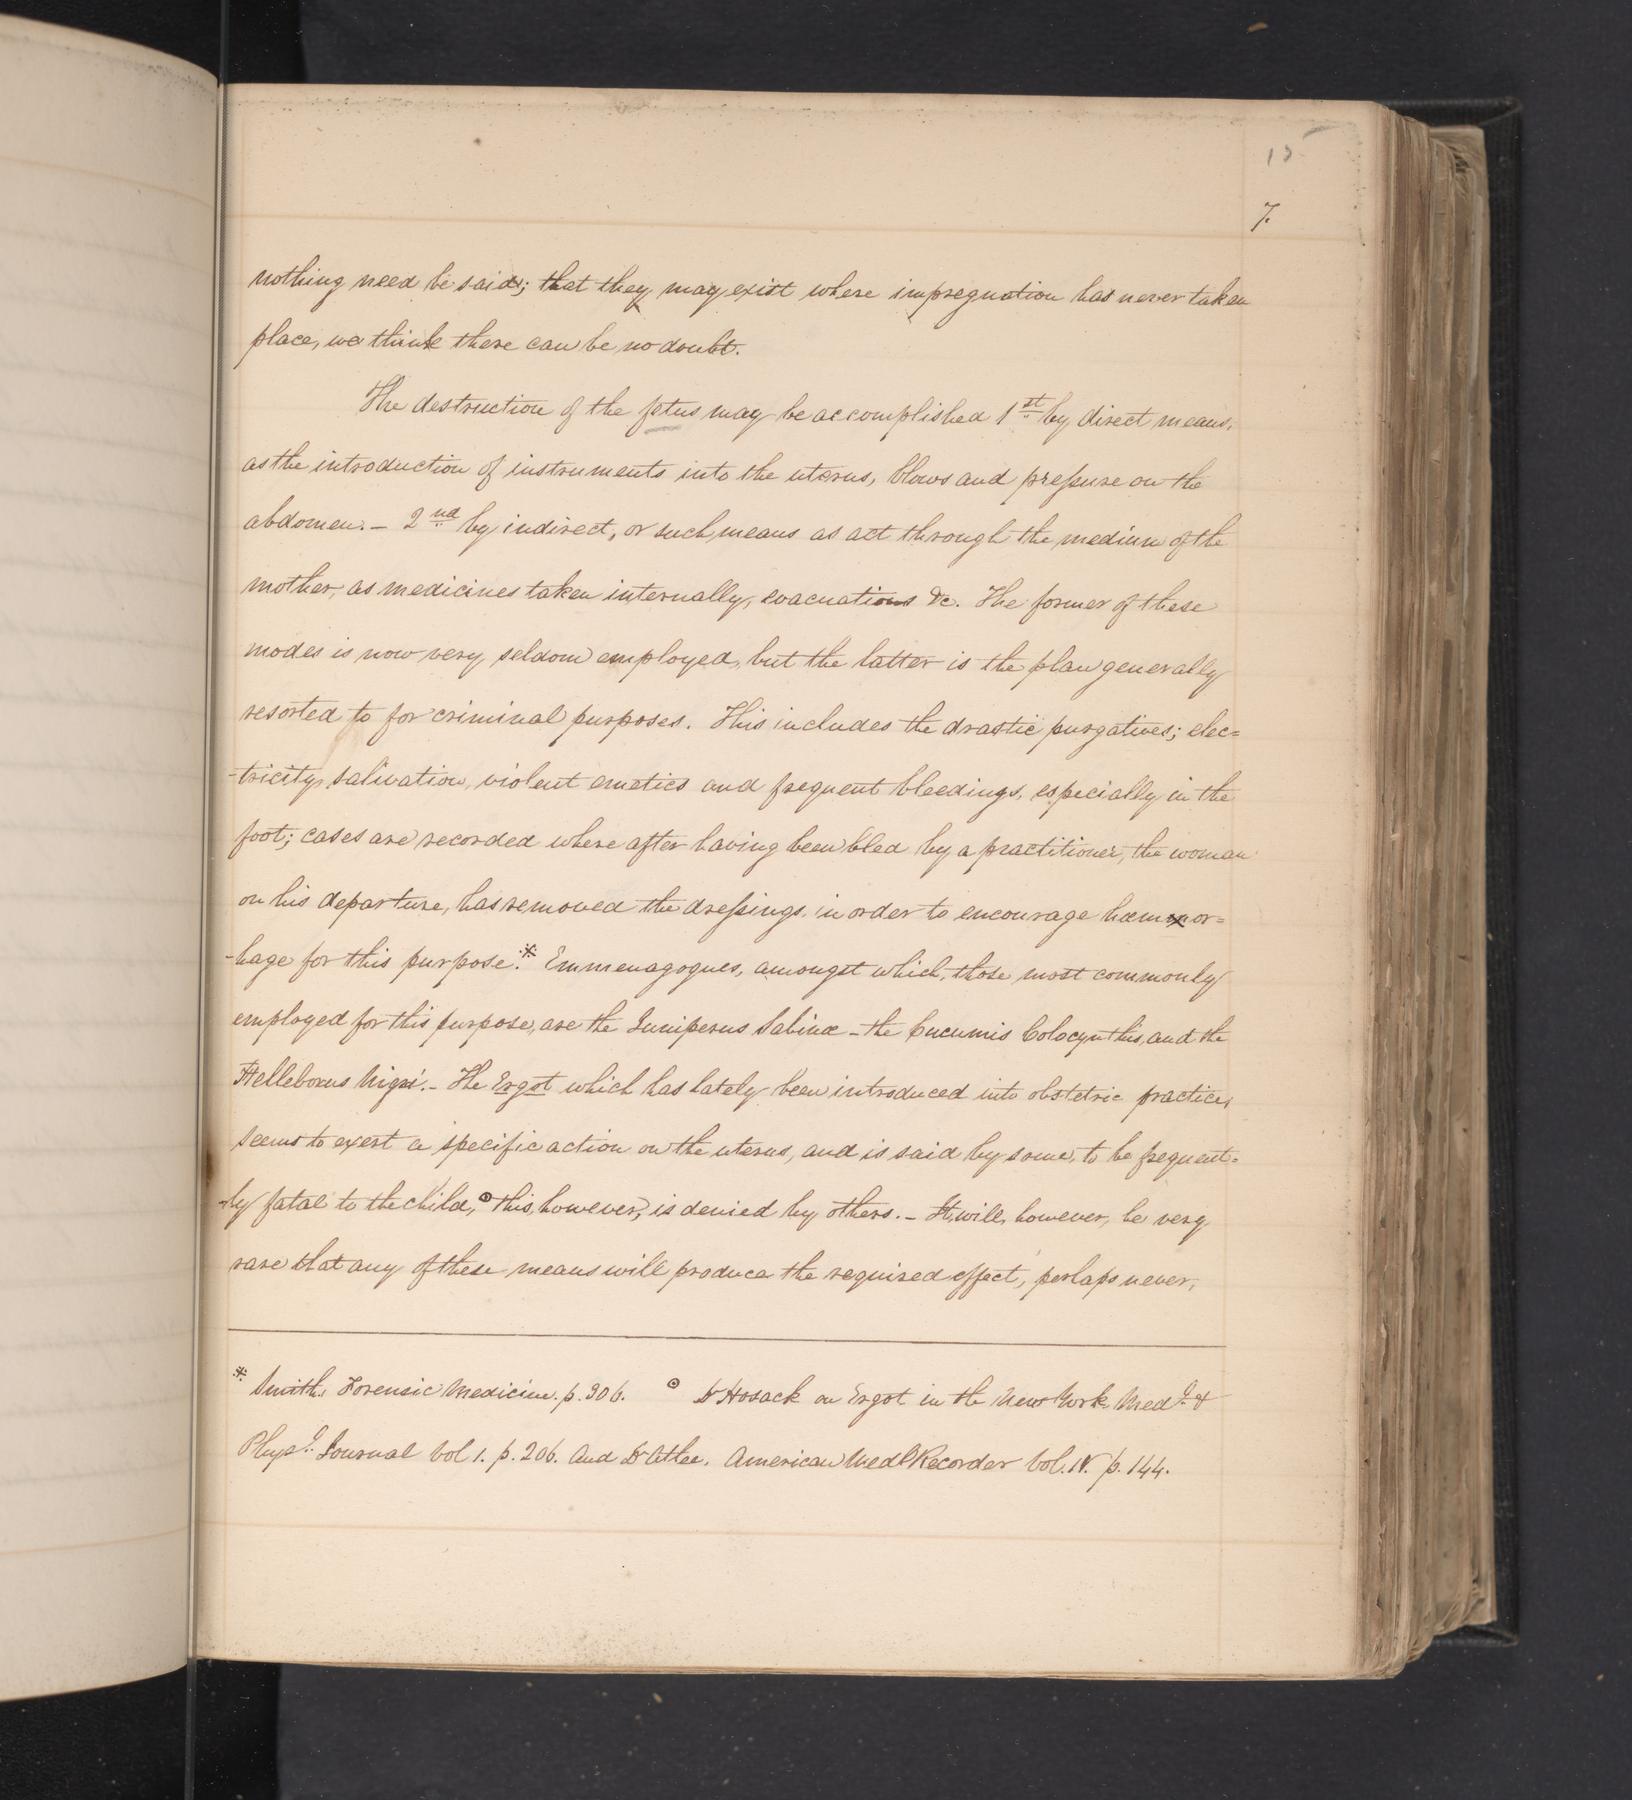 15
7.
nothing need be said; that they may exist where impregnation has never taken
place, we think there can be no doubt.
The destruction of the fetus may be accomplished 1st by direct means,
as the introduction of instruments into the uterus, blows and pressure on the
abdomen. – 2nd by indirect, or such means as act through the medium of the
mother, as medicines taken internally, evacuations &c. The former of these
modes is now very seldom employed, but the latter is the plan generally
resorted to for criminal purposes. This includes the drastic purgatives; elec=
-tricity, salivation, violent emetics and frequent bleedings, especially in the
foot; cases are recorded where after having been bled by a practitioner, the woman
on his departure, has removed the dressings, in order to encourage hæmor=
-hage for this purpose.* Emmenagogues, amongst which, those most commonly
employed for this purpose, are the Juniperus Sabina – the Cucumis Colocynthis, and the
Helleborus Nigri. – The Ergot which has lately been introduced into obstetric practice,
seems to exert a specific action on the uterus, and is said by some, to be frequent=
-ly fatal to the child,⊙ this, however, is denied by others. – It, will, however, be very
rare that any of these means will produce the required effect, perhaps never,
* Smith, Forensic Medicine. p. 306. ⊙ Dr Hosack on Ergot in the New York Medl. &
Physl. Journal Vol 1. p. 206. and Dr Atlee. American Medl Recorder Vol. IV. p. 144.